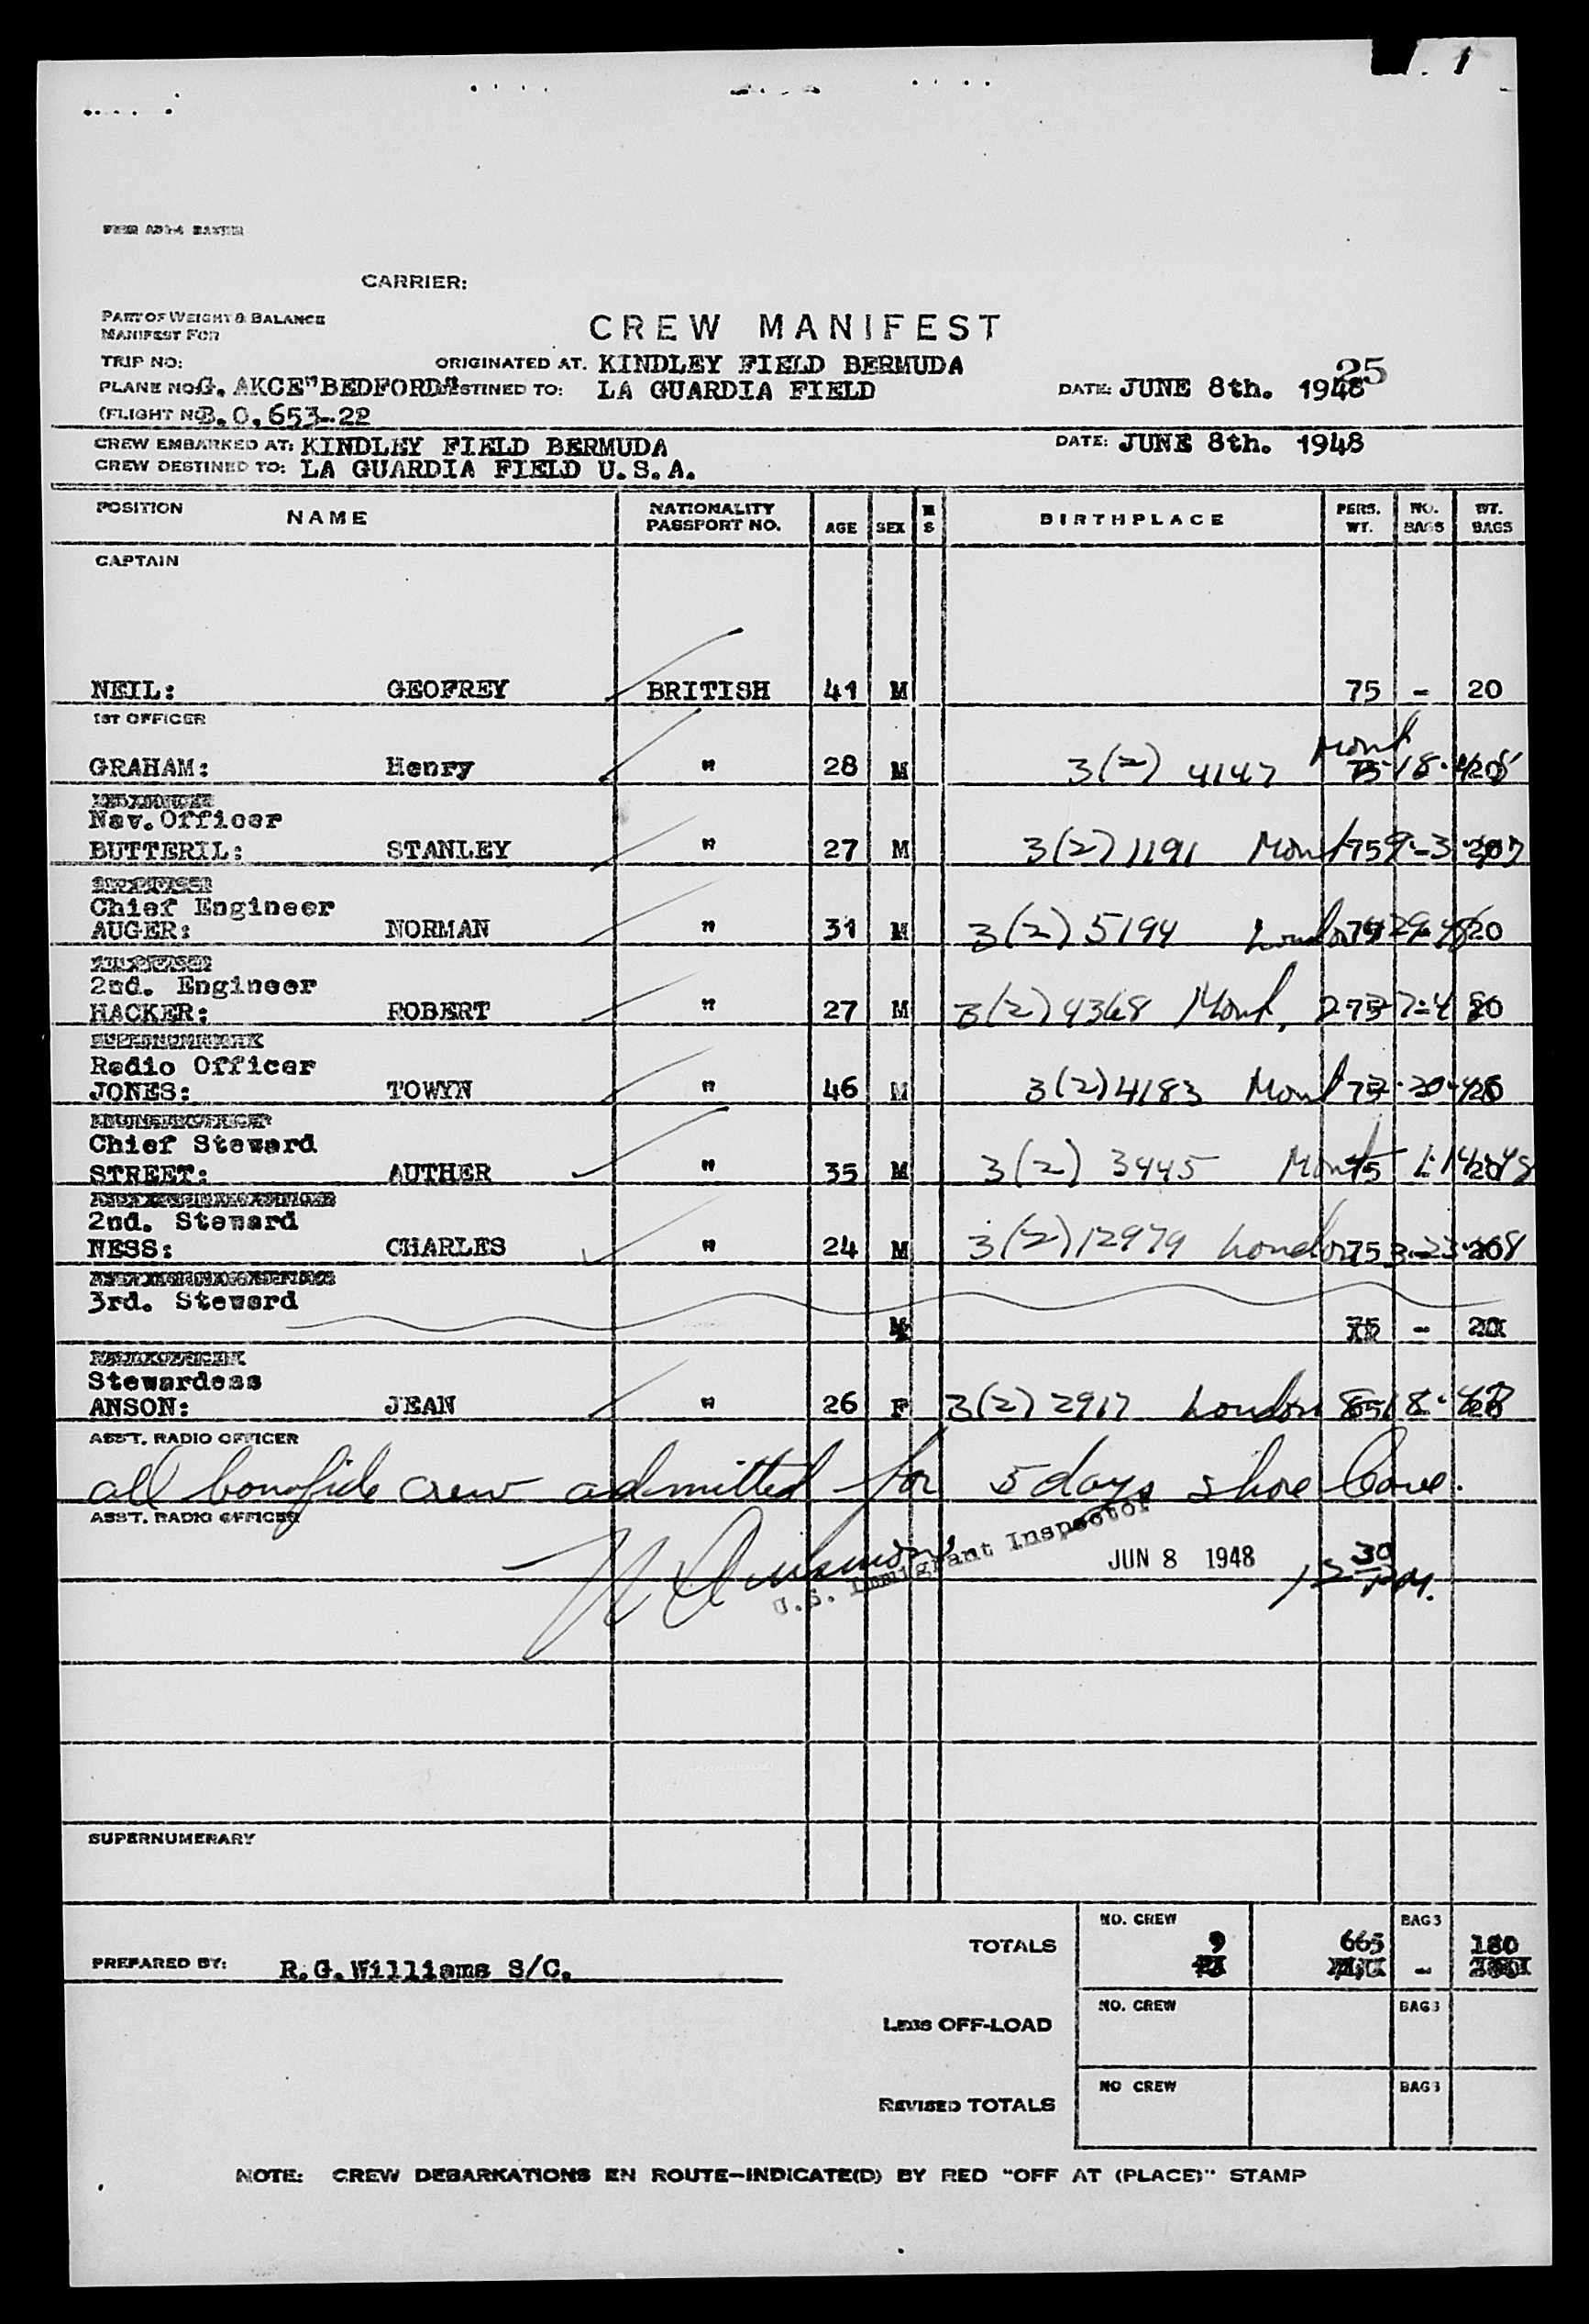 1
CARRIER:
PART OF WEIGHT & BALANCE
MANIFEST FOR
CREW MANIFEST
TRIP NO: ORIGINATED AT. KINDLEY FIELD BERMUDA 25
PLANE NO: G. AKCE "BEDFORD" DESTINED TO: LA GUARDIA FIELD DATE: JUNE 8th. 1948
(FLIGHT NO B.O.653-22
CREW EMBARKED AT: KINDLEY FIELD BERMUDA DATE: JUNE 8th. 1948
CREW DESTINED TO: LA GUARDIA FIELD U.S.A.
POSITION NAME NATIONALITY PASSPORT NO. AGE SEX M S BIRTHPLACE PERS. WT. NO. BAGS WT. BAGS
CAPTAIN
NEIL: GEOFREY BRITISH 41 M 75 - 20
1ST OFFICER
GRAHAM: Henry " 28 M 3(2) 4147 Mont 75 20
Nav. Officer
BUTTERIL: STANLEY " 27 M 3(2) 1191 Mont 75 - 20
Chief Engineer
AUGER: NORMAN " 31 M 3(2) 5194 London 75 20
2nd. Engineer
HACKER: ROBERT " 27 M 3(2) 4368 Mont, 75 20
Radio Officer
JONES: TOWYN " 46 M 3(2) 4183 Mont 75 20
Chief Steward
STREET: AUTHER " 35 M 3(2) 3445 Mont 75 20
2nd. Steward
NESS: CHARLES " 24 M 3(2) 12979 London 75 20
3rd. Steward
M 75 - 20
Stewardess
ANSON: JEAN " 26 F 3(2) 2917 London 65 20
ASS'T. RADIO OFFICER
all bonafide crew admitted for 5 days shore leave.
ASS'T. RADIO OFFICER
U.S. Immigrant Inspector JUN 8 1948 12 30 PM.
SUPERNUMERARY
TOTALS NO. CREW 9 665 BAGS - 180
PREPARED BY: R.G.Williams S/C.
LESS OFF-LOAD NO. CREW BAGS
REVISED TOTALS NO CREW BAGS
NOTE: CREW DEBARKATIONS EN ROUTE-INDICATE(D) BY RED "OFF AT (PLACE)" STAMP